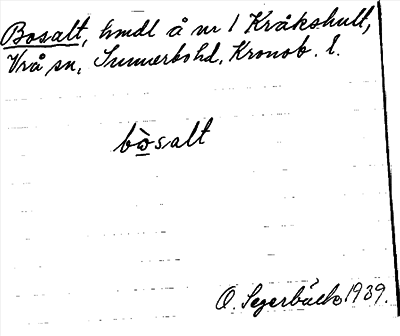 Bosalt, hmdl å nr 1 Kråkshult,
Vrå sn, Sunnerbo hd, Kronob. l.
bo̱̊̀salt
O. Segerbäck 1939.